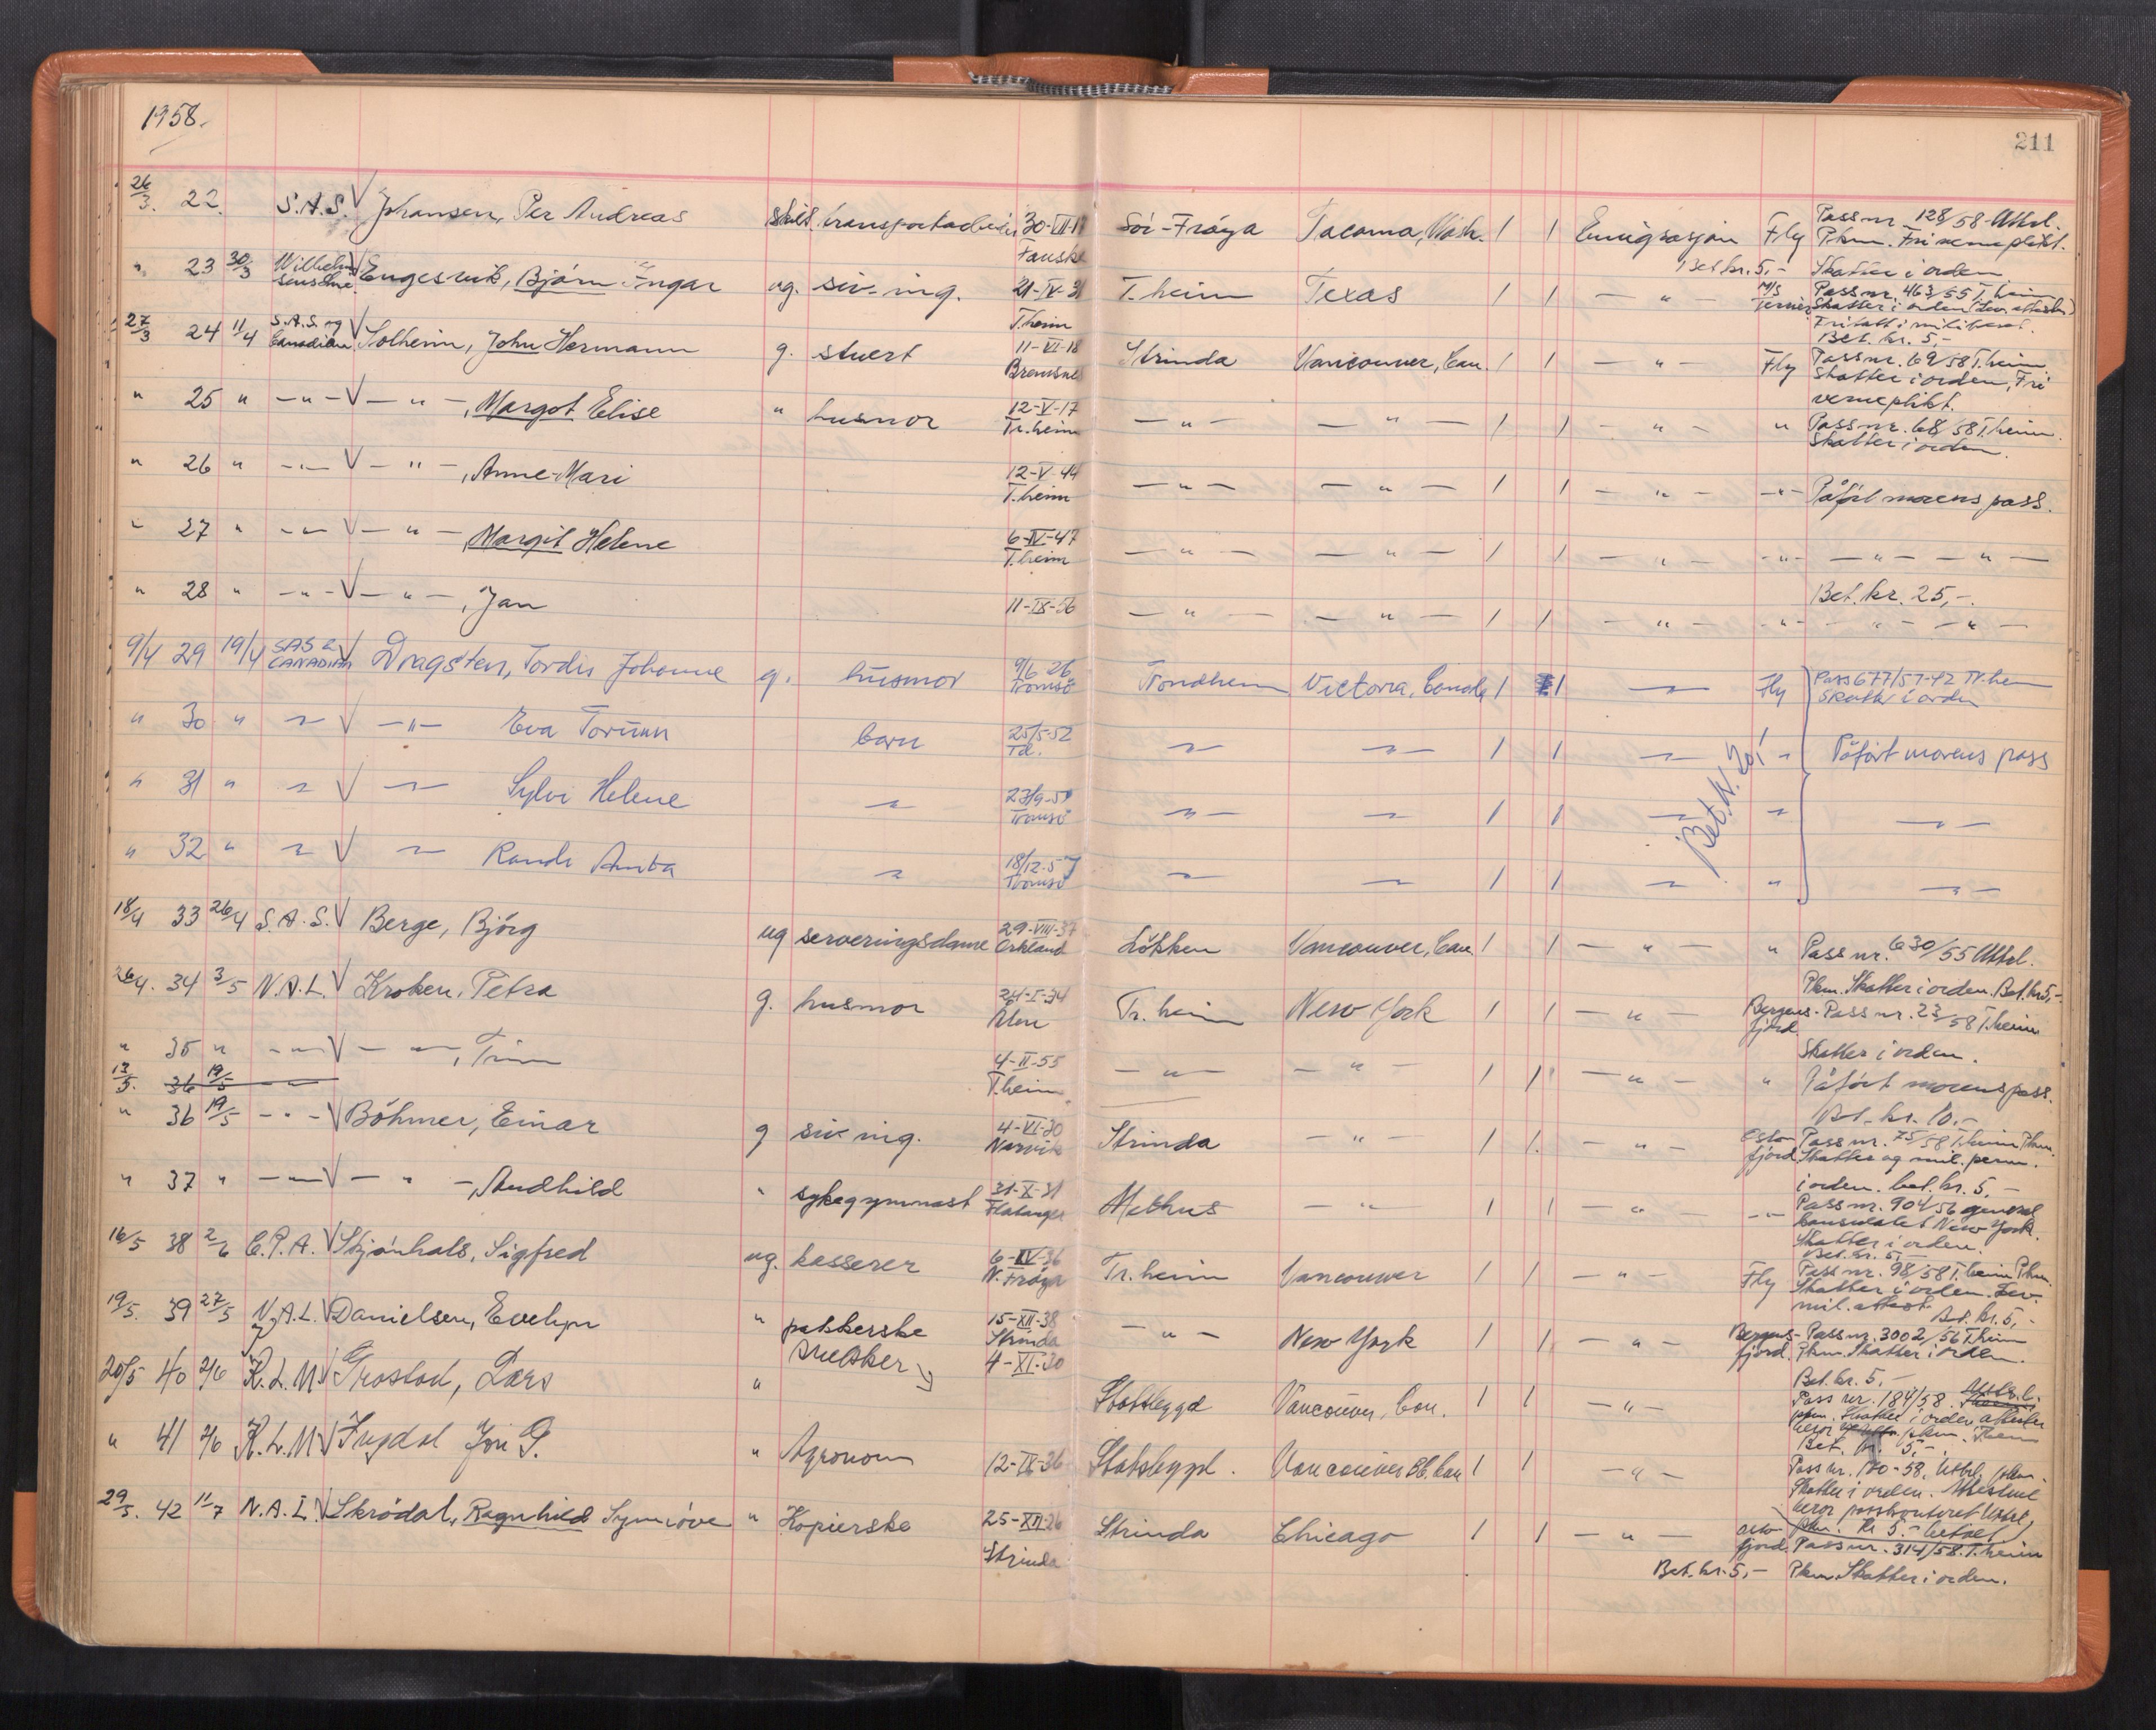 1958.
211
26/3. 22. S.A.S. V Johansen, Per Andreas skilt transportarbeider 30-VII-17 Sör-Fröya Tacoma, Wash. 1 1 Emigrasjon Fly Pass nr. 128/58 Uttrl.
Fauske Pkm. Fri verneplikt.
Bet. kr. 5,- Skatter i orden
" 23 30/3 Wilhelmsenslinje V Engesvik, Björn Ingar ug. siv. ing. 21-IV-31 T.heim Texas 1 1 — " — M/S Pass nr. 463/55 T.heim
T.heim Skatter i orden (Lev. attester)
Fritatt i militæret.
Bet. kr. 5,-
27/3 24 11/4 S.A.S. og Canadian V Solheim, John Hermann g. stuert 11-VI-18 Strinda Vancouver, Can. 1 1 — " — Fly Pass nr. 69/58 T.heim
Bremsnes Skatter i orden, Fri
verneplikt.
" 25 " — " — V — " —, Margot Elise " husmor 12-V-17 — " — — " — 1 1 — " — " Pass nr. 68/58 T.heim.
Tr.heim Skatter i orden.
" 26 " — " — V — " —, Anne-Mari 12-V-44 — " — — " — 1 1 — " — — " — Påfört morens pass.
T.heim
" 27 " — " — V — " — Margit Helene 6-IV-47 — " — — " — 1 1 — " — — " — — " — — " —
T.heim
Bet. kr. 25,-.
" 28 " — " — V — " —, Jan 11-IX-56 — " — — " — 1 1 — " — — " — — " — — " —
9/4 29 19/4 SAS & CANADIAN V Dragsten, Tordis Johanne g. husmor 9/6 26 Trondheim Victoria, Canada 1 1 — " — Fly Pass 677/57-42 Tr.heim
Tromsö Skatter i orden
" 30 " " V — " — Eva Torunn barn 25/5-52 — " — — " — 1 1 — " — " Påfört morens pass
Td.
Bet. kr. 20,-
" 31 " " V — " — Sylvi Helene " 23/9-51 — " — — " — 1 1 — " — " — " —
Tromsö
" 32 " " V — " — Randi Anita " 18/12-57 — " — — " — 1 1 — " — " — " —
Tromsö
18/4 33 26/4 S.A.S. V Berge, Björg ug serveringsdame 29-VIII-37 Lökken Vancouver, Can. 1 1 — " — " Pass nr. 630/55 Uttrl.
Orkland Pkm. Skatter i orden. Bet. kr 5,-.
26/4. 34 3/5 N.A.L. V Kroken, Petra g. husmor 24-I-34 Tr. heim New York 1 1 — " — Bergensfjord Pass nr. 23/58 T.heim
Ålen Skatter i orden.
" 35 " — " — V — " —, Trim 4-II-55 — " — — " — 1 1 — " — " Påfört morens pass.
T.heim Bet. kr. 10.-
13/5. 36 19/5 — " —
" 36 19/5 — " — V Böhmer, Einar g siv ing. 4-VI-30 Strinda — " — 1 1 — " — Oslofjord Pass nr. 75/58 T.heim Pkm.
Narvik Skatter og mil. perm.
i orden. bet. kr. 5,-
" 37 " — " — V — " —, Audhild " sykegymnast 31-X-31 Melhus — " — 1 1 — " — — " — Pass nr. 904/56 general
Flatanger konsulatet New York.
Skatter i orden.
Bet. kr. 5,-
16/5 38 2/6 C.P.A. V Stjönhals, Sigfred ug. kasserer 6-IV-36 Tr. heim Vancouver 1 1 — " — Fly Pass nr. 98/58 T.heim Pkm.
N. Fröya Skatter i orden. Lev.
mil. attest.
Bet. kr. 5,-
19/5. 39 27/5 N.A.L. V Danielsen, Evelyn " pakkerske 15-XII-38 — " — New York 1 1 — " — Bergensfjord. Pass nr. 3002/56 T.heim
Strinda Pkm. Skatter i orden.
Bet. kr. 5,-
20/5 40 2/6 K.L.M V Grostad, Lars " snekker 4-XI-30 Stadsbygd Vancouver, Can. 1 1 — " — Pass nr. 184/58. Uttr.l.
pkm. Skatter i orden attester
beror pkm.
Bet. kr. 5,-.
" 41 2/6 K.L.M V Fugdal Jon G. " Agronom 12-IX-36 Stadsbygd. Vancouver BC. Can 1 1 — " — Pass nr. 180-58, Uttrl. pkm.
Skatter i orden. Attestene
beror passkontoret Uttrl,
pkm. Kr 5.- betalt
29/5. 42 11/7 N.A.L. V Skrödal, Ragnhild Synnöve " Kopierske 25-XII-26 Strinda Chicago 1 1 — " — Oslofjord. Pass nr. 314/58. T.heim
Strinda Bet. kr. 5,- Pkm. Skatter i orden.